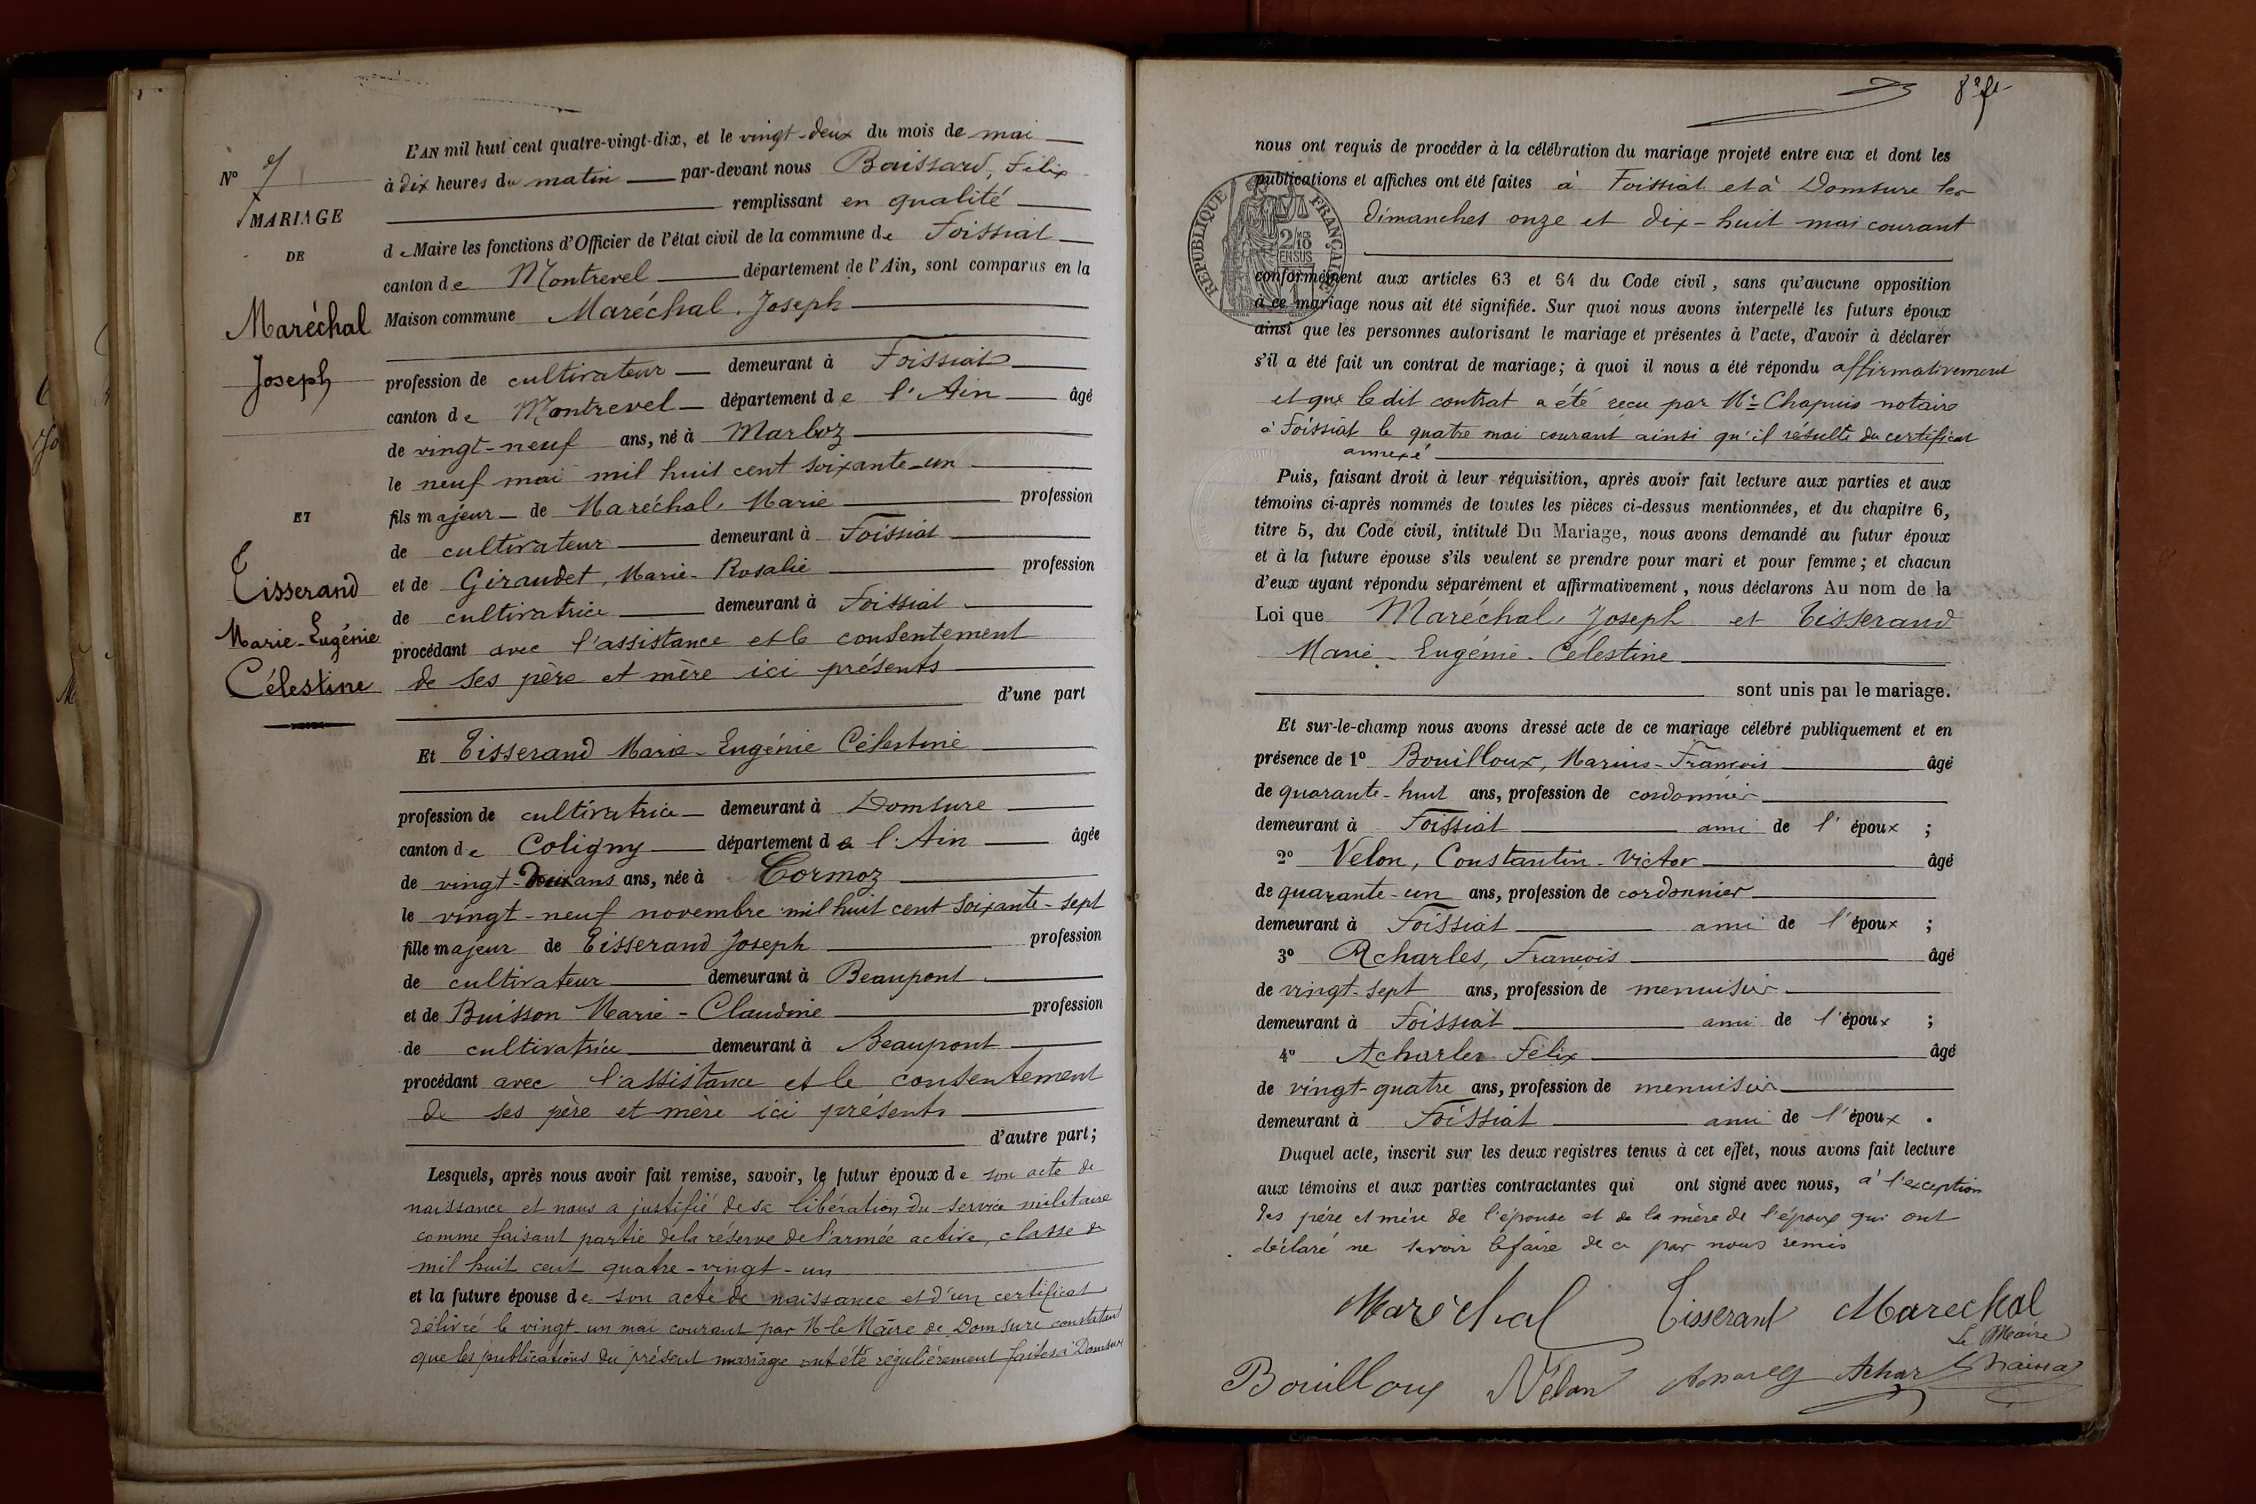 N° 7
MARIAGE
DE
Maréchal
Joseph
ET
Tisserand
Marie-Eugénie
Célestine
L'AN mil huit cent quatre-vingt-dix, et le vingt-deux du mois de mai
à dix heures du matin par-devant nous Baissard, Félix
remplissant en qualité
de Maire les fonctions d'Officier de l'état civil de la commune de Foissiat
canton de Montrevel département de l'Ain, sont comparus en la
Maison commune Maréchal, Joseph
profession de cultivateur demeurant à Foissiat
canton de Montrevel département de l'Ain âgé
de vingt-neuf ans, né à Marboz
le neuf mai mil huit cent soixante-un
fils majeur de Maréchal, Marie profession
de cultivateur demeurant à Foissiat
et de Giraudet, Marie-Rosalie profession
de cultivatrice demeurant à Foissiat
procédant avec l'assistance et le consentement
de ses père et mère ici présents
d'une part
Et Tisserand Marie-Eugénie Célestine
profession de cultivatrice demeurant à Domsure
canton de Coligny département de l'Ain âgée
de vingt-deux ans ans, née à Cormoz
le vingt-neuf novembre mil huit cent soixante-sept
fille majeur de Tisserand Joseph profession
de cultivateur demeurant à Beaupont
et de Buisson Marie-Claudine profession
de cultivatrice demeurant à Beaupont
procédant avec l'assistance et le consentement
de ses père et mère ici présents
d'autre part;
Lesquels, après nous avoir fait remise, savoir, le futur époux de son acte de
naissance et nous a justifié de sa libération du service militaire
comme faisant partie de la réserve de l'armée active, classe de
mil huit cent quatre-vingt-un
et la future épouse de son acte de naissance et d'un certificat
délivré le vingt-un mai courant par M. le Maire de Domsure constatant
que les publications du présent mariage ont été régulièrement faites à Domsure
nous ont requis de procéder à la célébration du mariage projeté entre eux et dont les
publications et affiches ont été faites à Foissiat et à Domsure les
dimanches onze et dix-huit mai courant
RÉPUBLIQUE FRANÇAISE
conformément aux articles 63 et 64 du Code civil, sans qu'aucune opposition
à ce mariage nous ait été signifiée. Sur quoi nous avons interpellé les futurs époux
ainsi que les personnes autorisant le mariage et présentes à l'acte, d'avoir à déclarer
s'il a été fait un contrat de mariage; à quoi il nous a été répondu affirmativement
et que le dit contrat a été reçu par Me Chapuis notaire
à Foissiat le quatre mai courant ainsi qu'il résulte du certificat
annexé
Puis, faisant droit à leur réquisition, après avoir fait lecture aux parties et aux
témoins ci-après nommés de toutes les pièces ci-dessus mentionnées, et du chapitre 6,
titre 5, du Code civil, intitulé Du Mariage, nous avons demandé au futur époux
et à la future épouse s'ils veulent se prendre pour mari et pour femme; et chacun
d'eux ayant répondu séparément et affirmativement, nous déclarons Au nom de la
Loi que Maréchal, Joseph et Tisserand
Marie-Eugénie-Célestine
sont unis par le mariage.
Et sur-le-champ nous avons dressé acte de ce mariage célébré publiquement et en
présence de 1° Bouilloux, Marius-François âgé
de quarante-huit ans, profession de cordonnier
demeurant à Foissiat ami de l'époux ;
2° Velon, Constantin-Victor âgé
de quarante-un ans, profession de cordonnier
demeurant à Foissiat ami de l'époux ;
3° Acharles, François âgé
de vingt-sept ans, profession de menuisier
demeurant à Foissiat ami de l'époux ;
4° Acharles Félix âgé
de vingt-quatre ans, profession de menuisier
demeurant à Foissiat ami de l'époux .
Duquel acte, inscrit sur les deux registres tenus à cet effet, nous avons fait lecture
aux témoins et aux parties contractantes qui ont signé avec nous, à l'exception
des père et mère de l'épouse et de la mère de l'époux qui ont
déclaré ne savoir le faire de ce par nous remis
Maréchal Tisserant Marechal
Le Maire
Bouilloux Vélon Achar